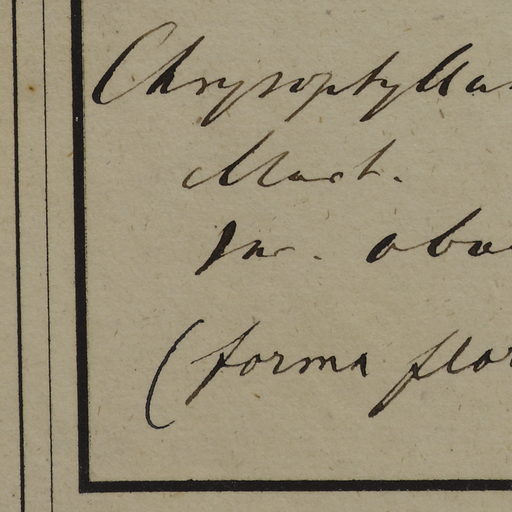 Chrysophyllu
Mart.
var. obo
(forma flor